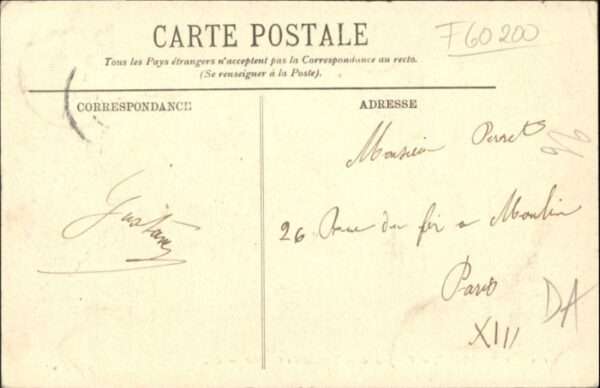 CARTE POSTALE
F60200
Tous les Pays étrangers n'acceptent pas la Correspondance au recto.
(Se renseigner à la Poste).
CORRESPONDANCE
ADRESSE
Monsieur Perret
Gustave
26 Rue du fer a Moulin
Paris
XIII
DA